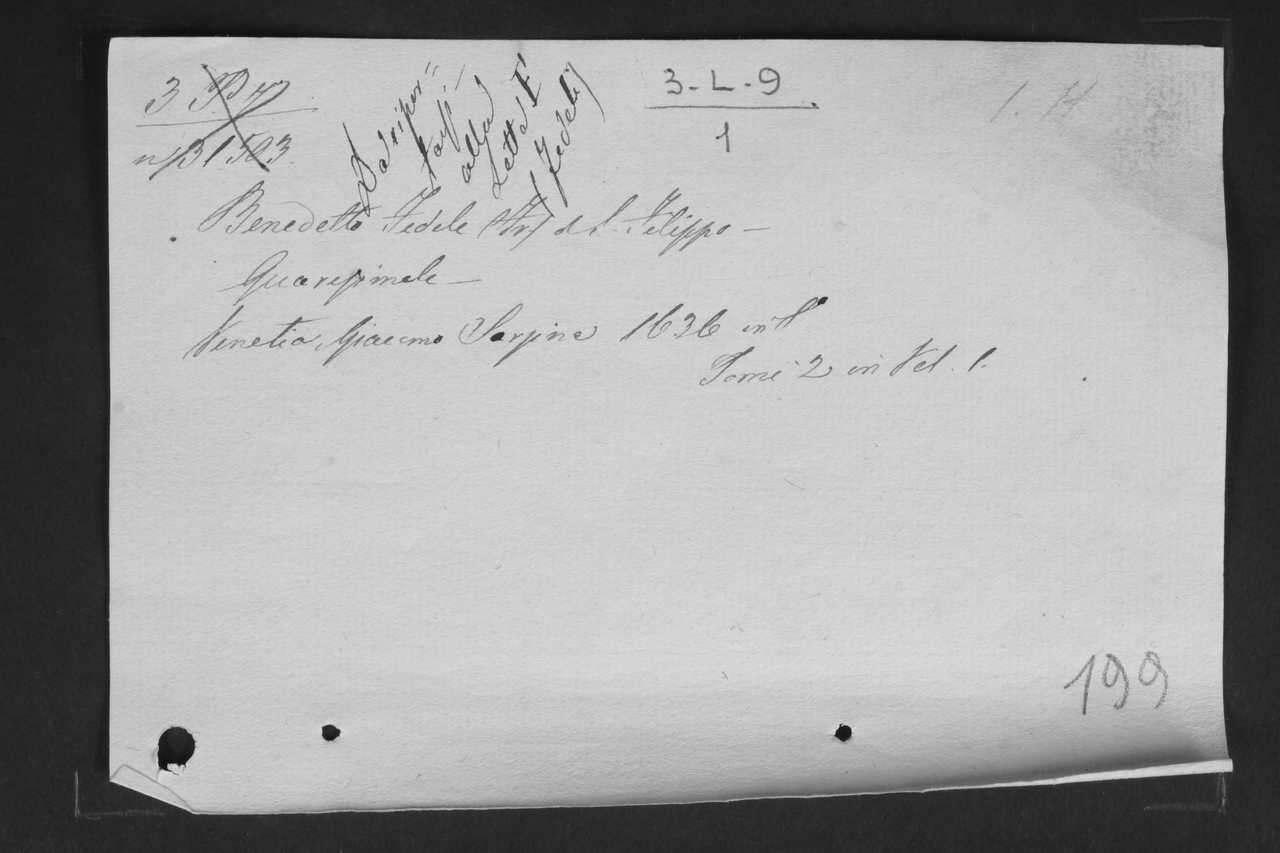 3 B 47
n/31503
Da ripor"
tarsi
alla
Letta F
(Fedeli)
3-L-9
1
1. H
Benedetto Fedele (Fr) da S. Filippo –
Quaresimale –
Venetia, Giacomo Sarzina 1636 in 4°
Tomi 2 in Vol. 1.
199